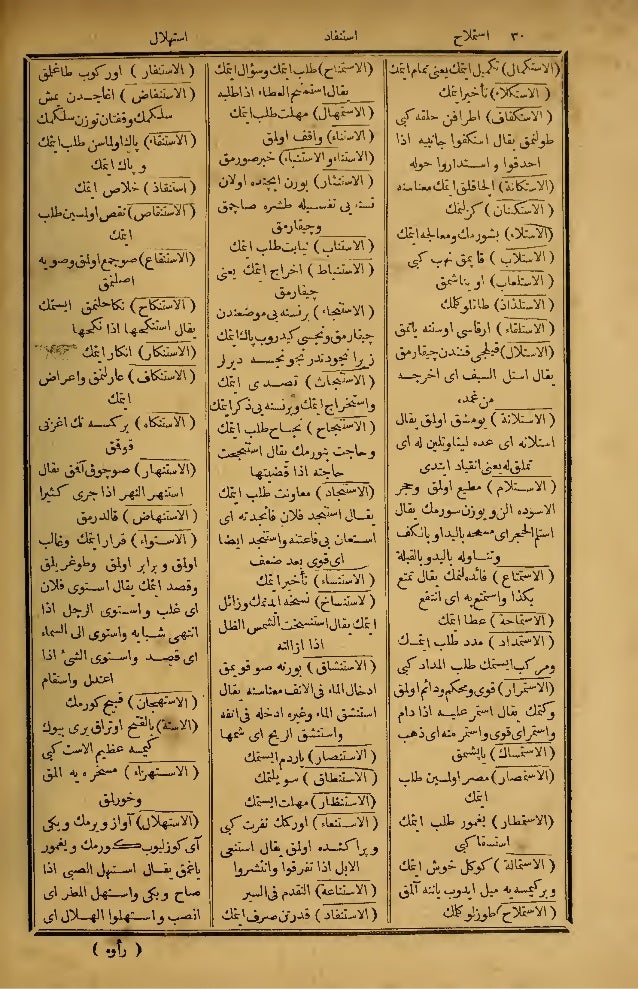 ٣٠ استملاح
استنفاد
استهلال
(الاستكمال) تكميل ايتمك يعنى تمام ايتمك
(الاستكلاء) تأخير ايتمك
(الاستكفاف) اطرافن حلقه كبى
طولنمق يقال استكفوا جانبيه اذا
احدقوا واستداروا حوله
(الاستكانة) الحاقلق ايتمك معناسنه
(الاستكنان) كزلنمك
(الاستلاء) بشورمك ومعالجه ايتمك
(الاستلاب) قاپمق نهب كبى
(الاستلعاب) اويناشمق
(الاستلذاذ) طاتلو كلمك
(الاستلقاء) ارقاسى اوستنه ياتمق
(الاستلال) قيلجى قنندن چيقارمق
يقال استل السيف اى اخرجه
من غمده
(الاستلانة) يومشق اولمق يقال
استلانه اى عده لينا وتلين له اى
تملق له يعنى انقياد ايتدى
(الاستلام) مطيع اولمق وحجر
الاسوده الن ويوزن سورمك يقال
استلم الحجر اى مسحه باليد او بالكف
وتناوله باليد وبالقبلة
(الاستمتاع) فائده لنمك يقال تمتع
بكذا واستمتع به اى انتفع
(الاستماحة) عطا ايتمك
(الاستمداد) مدد طلب ايتمك
ومركب ايستمك طلب المداد كبى
(الاستمرار) قوى ومحكم ودائم اولمق
وكتمك يقال استمر عليه اذا دام
واستمر اى قوى واستمر منه اى ذهب
(الاستمساك) ياپشمق
(الاستمصار) مصر اولمسين طلب
ايتمك
(الاستمطار) يغمور طلب ايتمك
استسقا كبى
(الاستمالة) كوكل خوش ايتمك
وبر كيمسه يه ميل ايدوب ياننه آلمق
(الاستملاح) طوزلو كلمك
(الاستمناح) طلب ايتمك وسؤال ايتمك
يقال استمنحه العطاء اذا طلبه
(الاستمهال) مهلت طلب ايتمك
(الاستناء) واقف اولمق
(الاستنباء والاستنباء) خبر صورمق
(الاستنثار) بورن ايچنده اولان
نسنه يى نفسيله طشره صاچمق
وچيقارمق
(الاستناب) نيابت طلب ايتمك
(الاستنباط) اخراج ايتمك يعنى
چيقارمق
(الاستنجاء) برنسنه يى موضعندن
چيقارمق ونجسى كيدروب پاك ايتمك
زيرا نجو دندر نجو نجسه ديرلر
(الاستنجاث) تصدى ايتمك
واستخراج ايتمك وبرنسنه يى ذكر ايتمك
(الاستنجاح) نجاح طلب ايتمك
وحاجت بتورمك يقال استنجحت
حاجته اذا قضيتها
(الاستنجاد) معاونت طلب ايتمك
يقال استنجد فلان فانجدته اى
استعان بى فاعنته واستنجد ايضا
اى قوى بعد ضعف
(الاستنساء) تأخير ايتمك
(الاستنساخ) نسخه ايتمك وزائل
ايتمك يقال استنسخت الشمس الظل
اذا ازالته
(الاستنشاق) بورنه صو قويمق
ادخال الماء فى الانف معناسنه يقال
استنشق الماء وغيره ادخله فى انفه
واستنشق الريح اى شمها
(الاستنصار) ياردم ايستمك
(الاستنطاق) سويلتمك
(الاستنظار) مهلت ايستمك
(الاستنعاء) اوركمك نفرت كبى
وپراكنده اولمق يقال استنعى
الابل اذا تفرقوا وانتشروا
(الاستناعة) التقدم فى السير
(الاستنفاد) قدرتن صرف ايتمك
(الاستنفار) اوركوب طاغلمق
(الاستنفاض) اغاجدن يمش
سلكمك وقفتان توزن سلكمك
(الاستنقاء) پاك اولماسن طلب ايتمك
وپاك ايتمك
(استنقاذ) خلاص ايتمك
(الاستنقاص) نقص اولمسين طلب
ايتمك
(الاستنقاع) صو جمع اولمق وصويه
اصلنمق
(الاستنكاح) نكاحلنمق ايستمك
يقال استنكحها اذا نكحها
(الاستنكار) انكار ايتمك
(الاستنكاف) عارلنمق واعراض
ايتمك
(الاستنكاه) بر كسه نك اغزينى
قوقمق
(الاستنهار) صو چوق آقمق يقال
استنهر النهر اذا جرى كثيرا
(الاستنهاض) قالدرمق
(الاستواء) قرار ايتمك وغالب
اولمق وبرابر اولمق وطوغريلق
وقصد ايتمك يقال استوى فلان
اى غلب واستوى الرجل اذا
انتهى شبابه واستوى الى السماء
اى قصد واستوى الشئ اذا
اعتدل واستقام
(الاستهجان) قبيح كورمك
(الاستة) بالفتح اوتراق يرى بيوك
كيمسه عظيم الاست كبى
(الاستهزاء) مسخره يه المق
وخورلمق
(الاستهلال) آواز ويرمك ويكى
آى كوزليوب كورمك ويغمور
ياغمق يقال استهل الصبى اذا
صاح وبكى واستهل المطر اى
انصب واستهلوا الهلال اى
( رأوه )